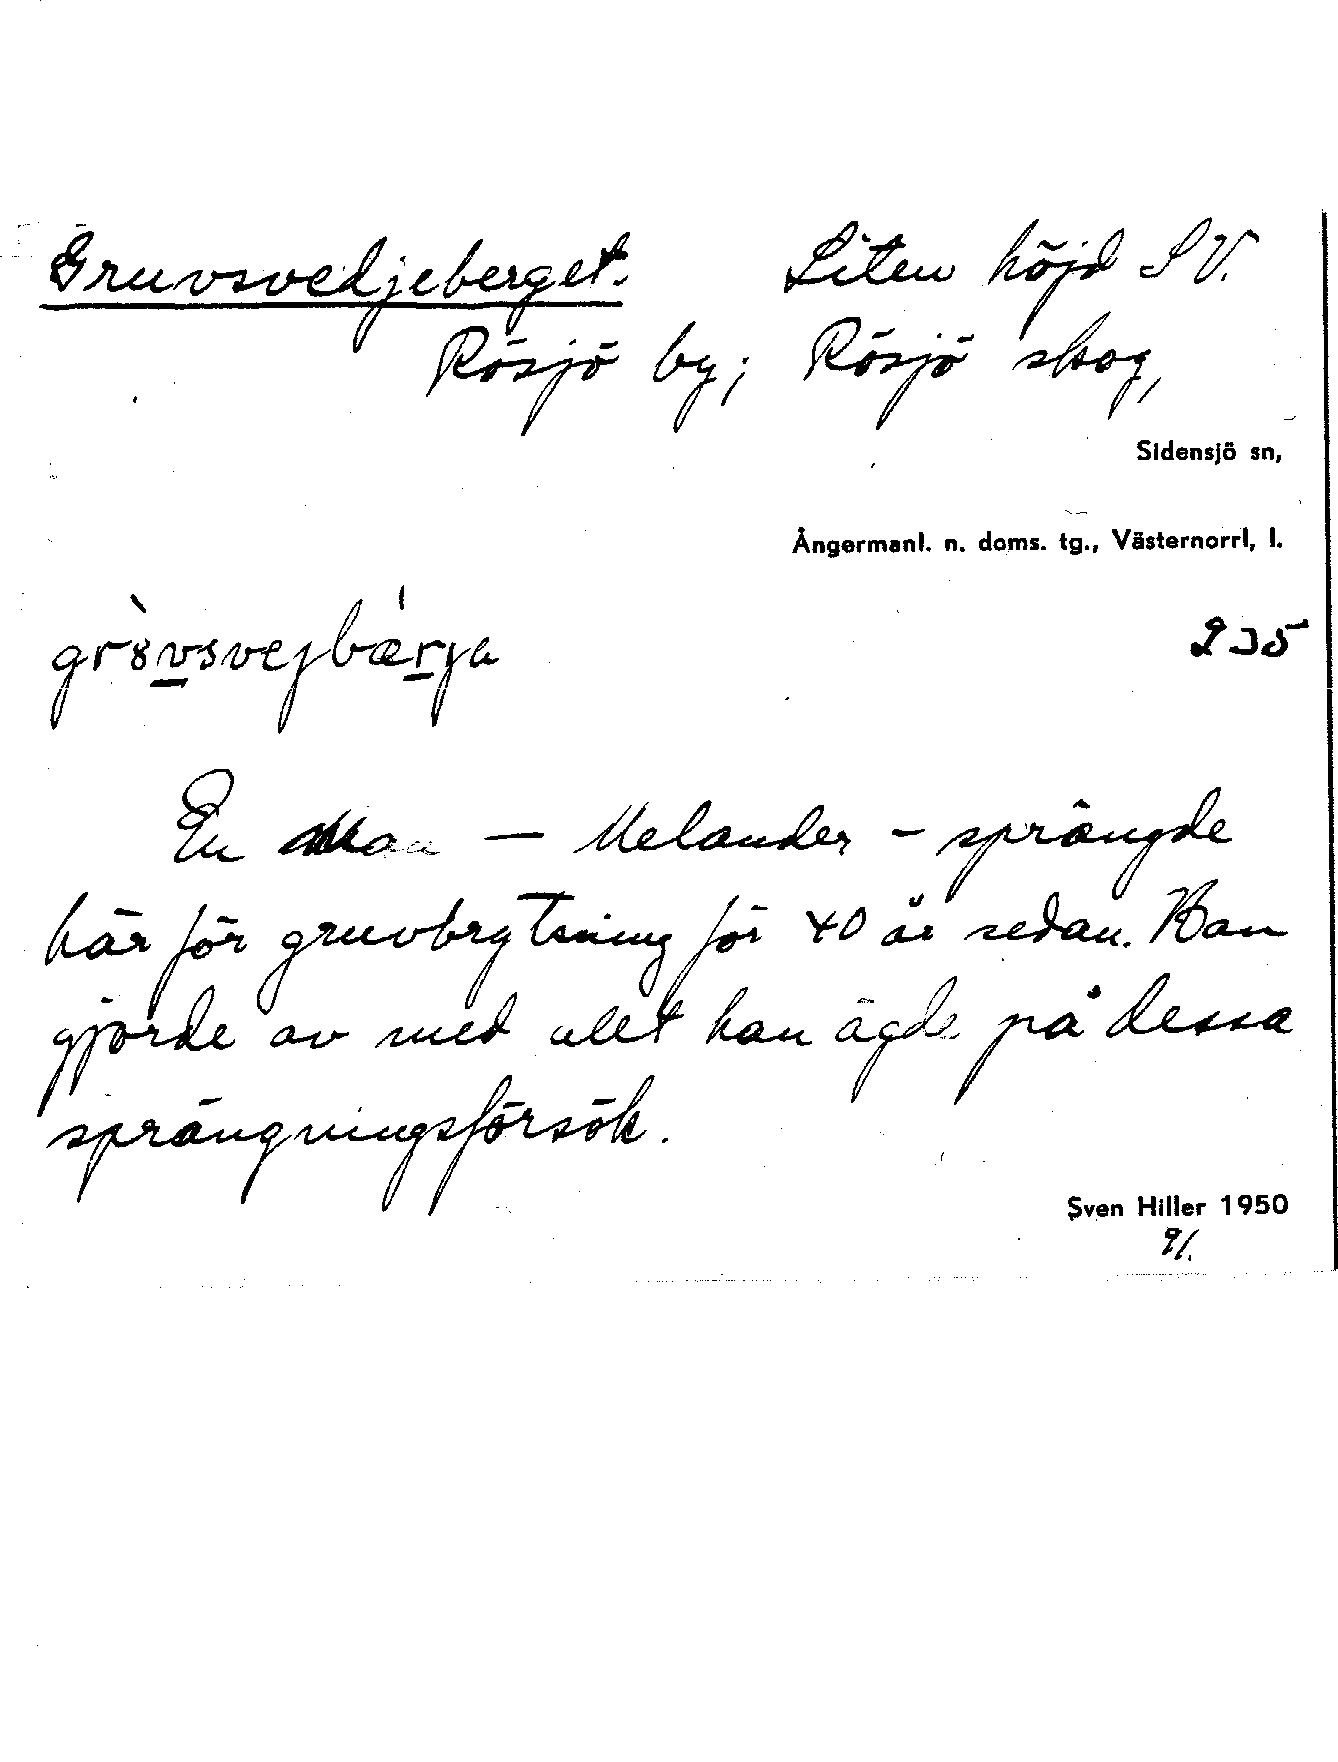 Gruvsvedjeberget. Liten höjd S V.
Rösjö by; Rösjö skog,
Sidensjö sn,
Ångermanl. n. doms. tg., Västernorrl, l.
gr8̀vsvejbæ̀rja 235
En Man — Melander - sprängde
här för gruvbrytning för 40 år sedan. Han
gjorde av med allt han ägde på dessa
sprängningsförsök.
Sven Hiller 1950
9/.